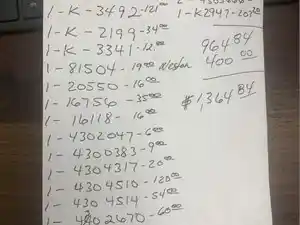 1-K-3492-121⁰⁰
1-K-2199-34⁰⁰
1-K-3341-121⁰⁰
1-81504-19⁰⁰
1-20550-16⁰⁰
1-16756-35⁰⁰
1-16118-16⁰⁰
1-4302047-6⁰⁰
1-4300383-9⁰⁰
1-4304317-20⁰⁰
1-4304510-120⁰⁰
1-4304514-54⁰⁰
1-4302670-60⁰⁰
1-K2947-207⁰⁰
964⁸⁴
400⁰⁰
$1,364⁸⁴